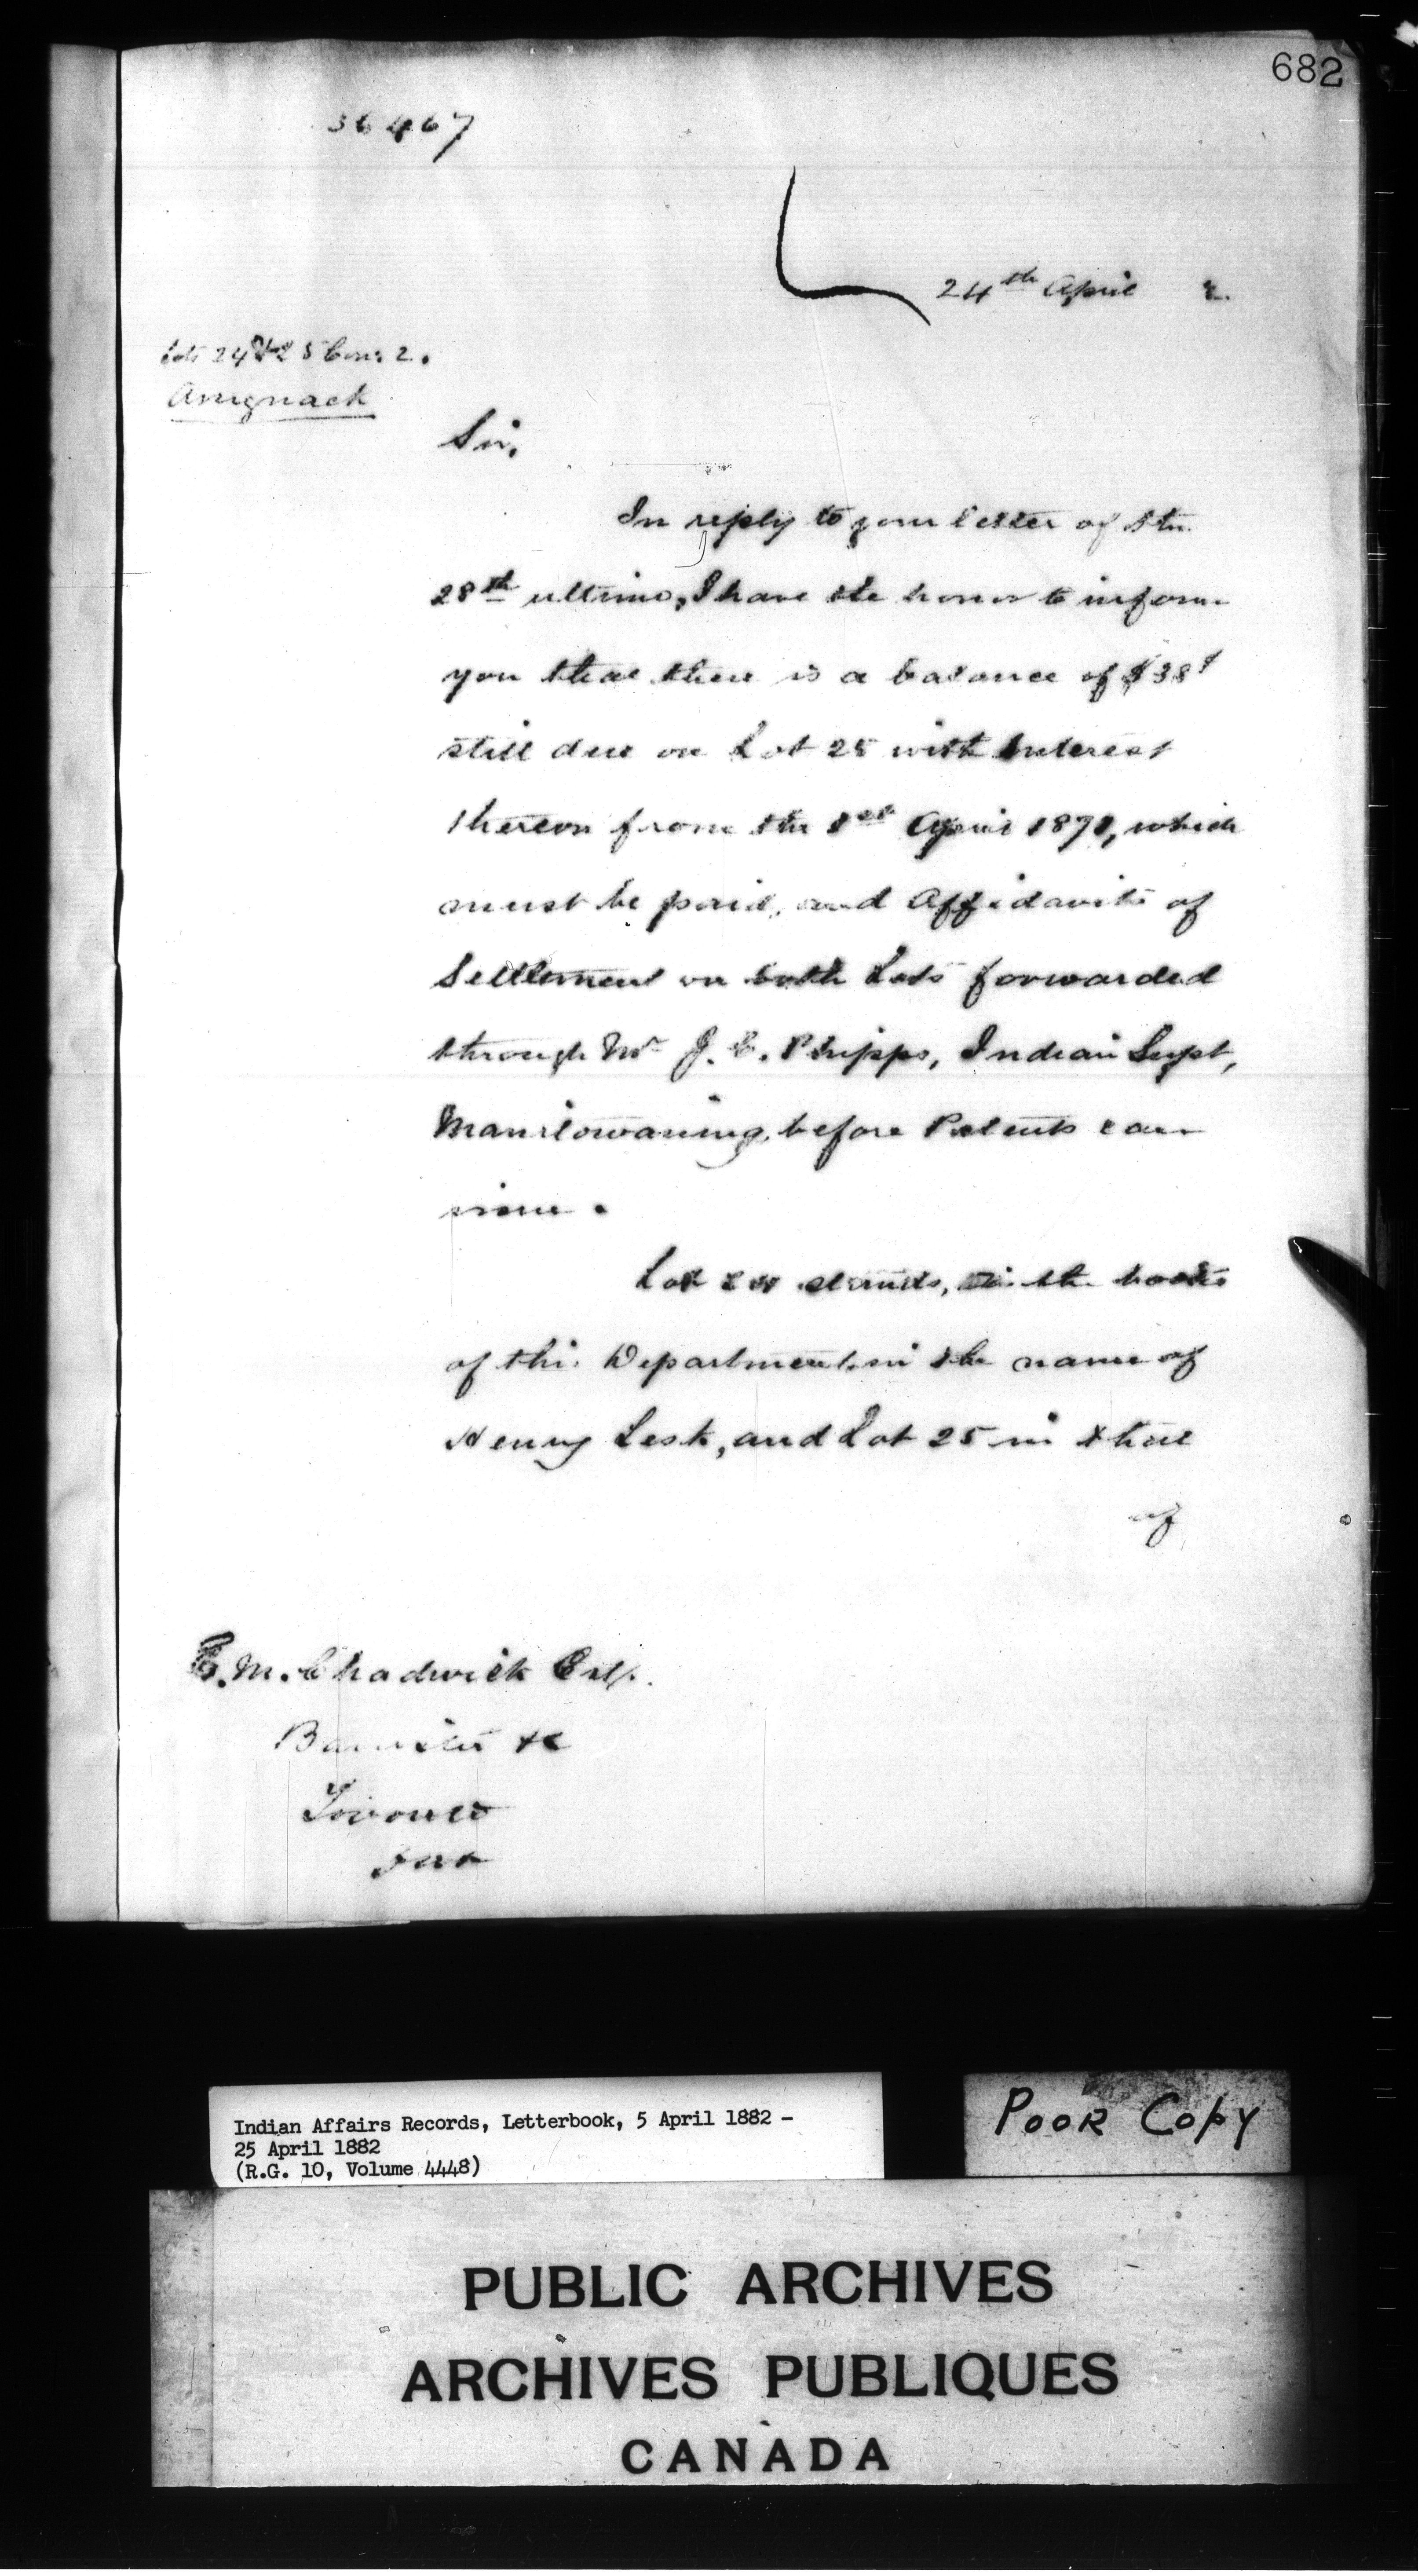 682
36467
24th April 2.
Lots 24 & 25 Con: 2.
Assignack
Sir,
In reply to your letter of the
28th ultimo, I have the honor to inform
you that there is a balance of $38
still due on Lot 25 with Interest
thereon from the 1st April 1871, which
must be paid, and Affidavits of
Settlement on both Lots forwarded
through Mr J. C. Phipps, Indian Supt,
Manitowaning, before Patents can
issue.
Lot 24 stands, in the books
of this Department in the name of
Henry Lesk, and Lot 25 in that
of
E. M. Chadwick Esq.
Barrister &c
Toronto
Ont
Indian Affairs Records, Letterbook, 5 April 1882 -
25 April 1882
(R.G. 10, Volume 4448)
POOR COPY
PUBLIC ARCHIVES
ARCHIVES PUBLIQUES
CANADA